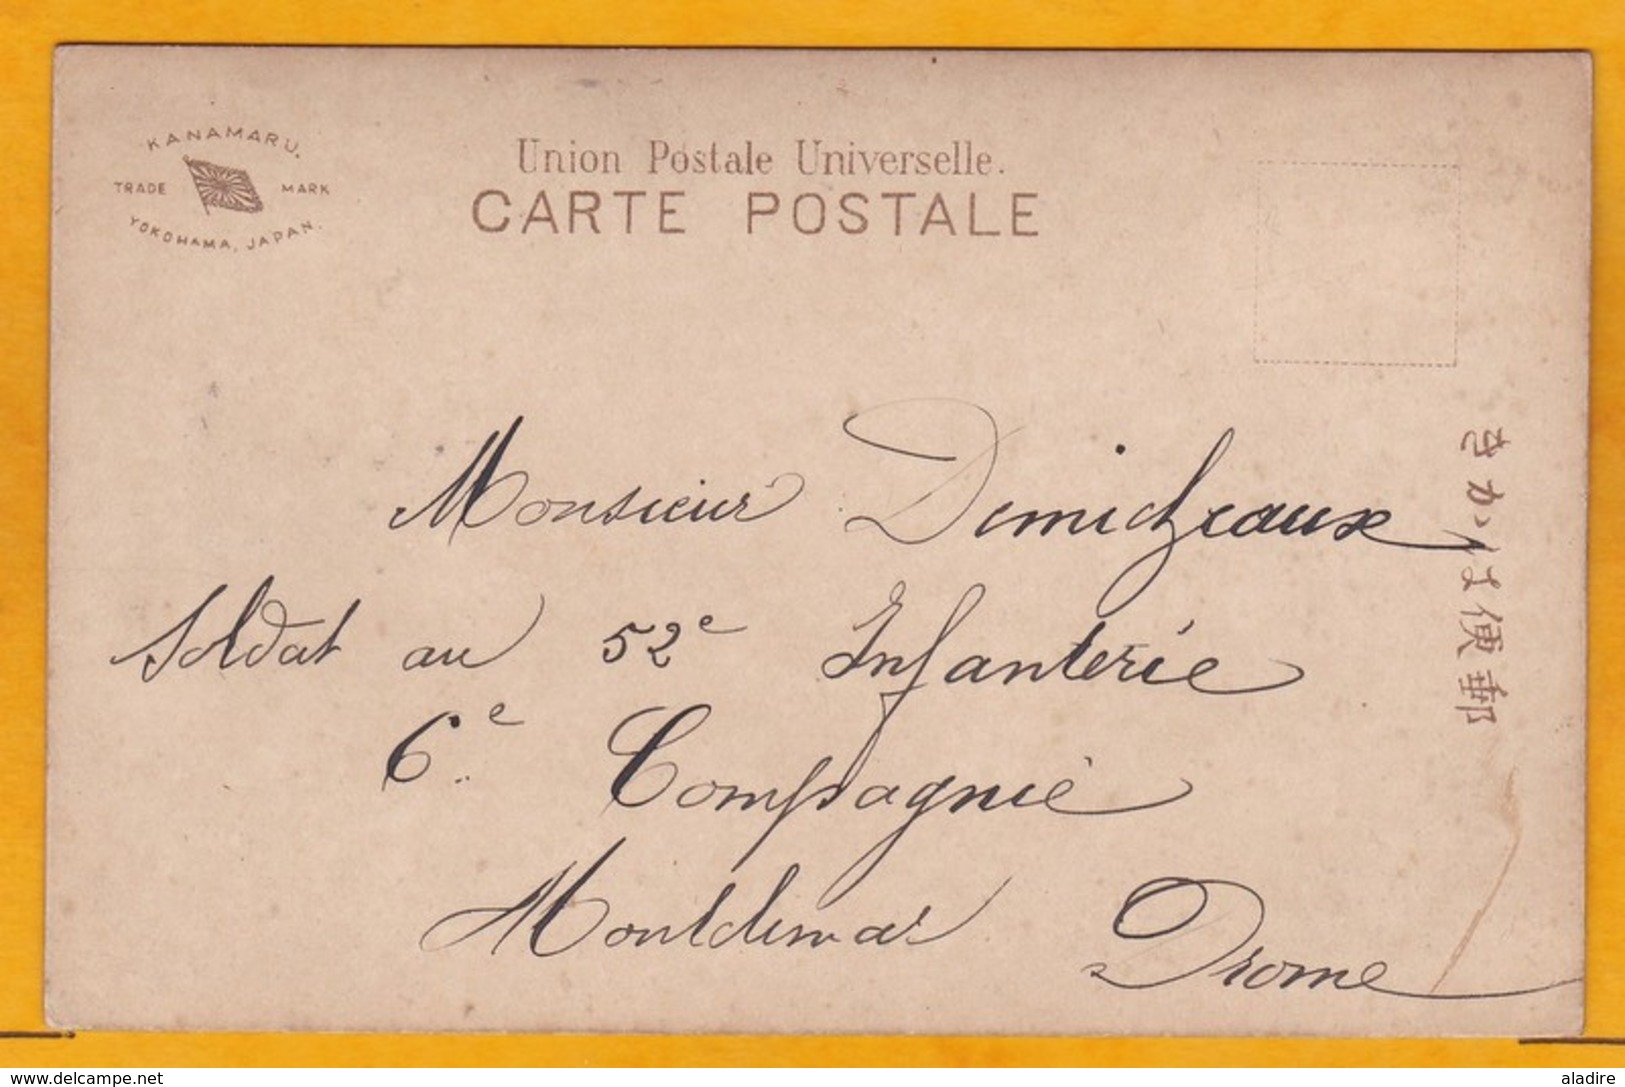 KANAMARU.
TRADE MARK
YOKOHAMA, JAPAN.
Union Postale Universelle.
CARTE POSTALE
きかは便郵
Monsieur Demicheaux
Soldat au 52e Infanterie
6e Compagnie
Montelimar Drome
www.delcampe.net
aladire